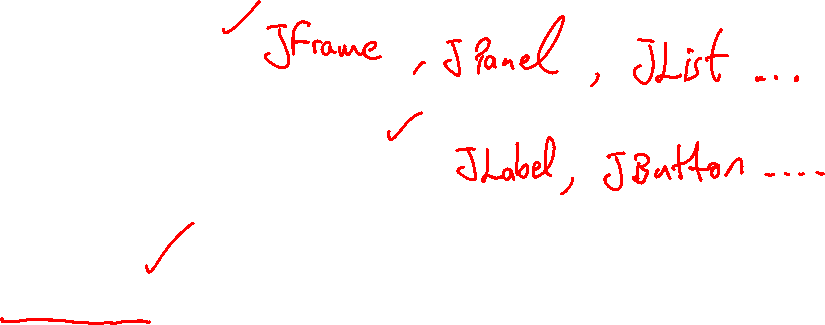 JFrame, JPanel, JList ...
JLabel, JButton ....